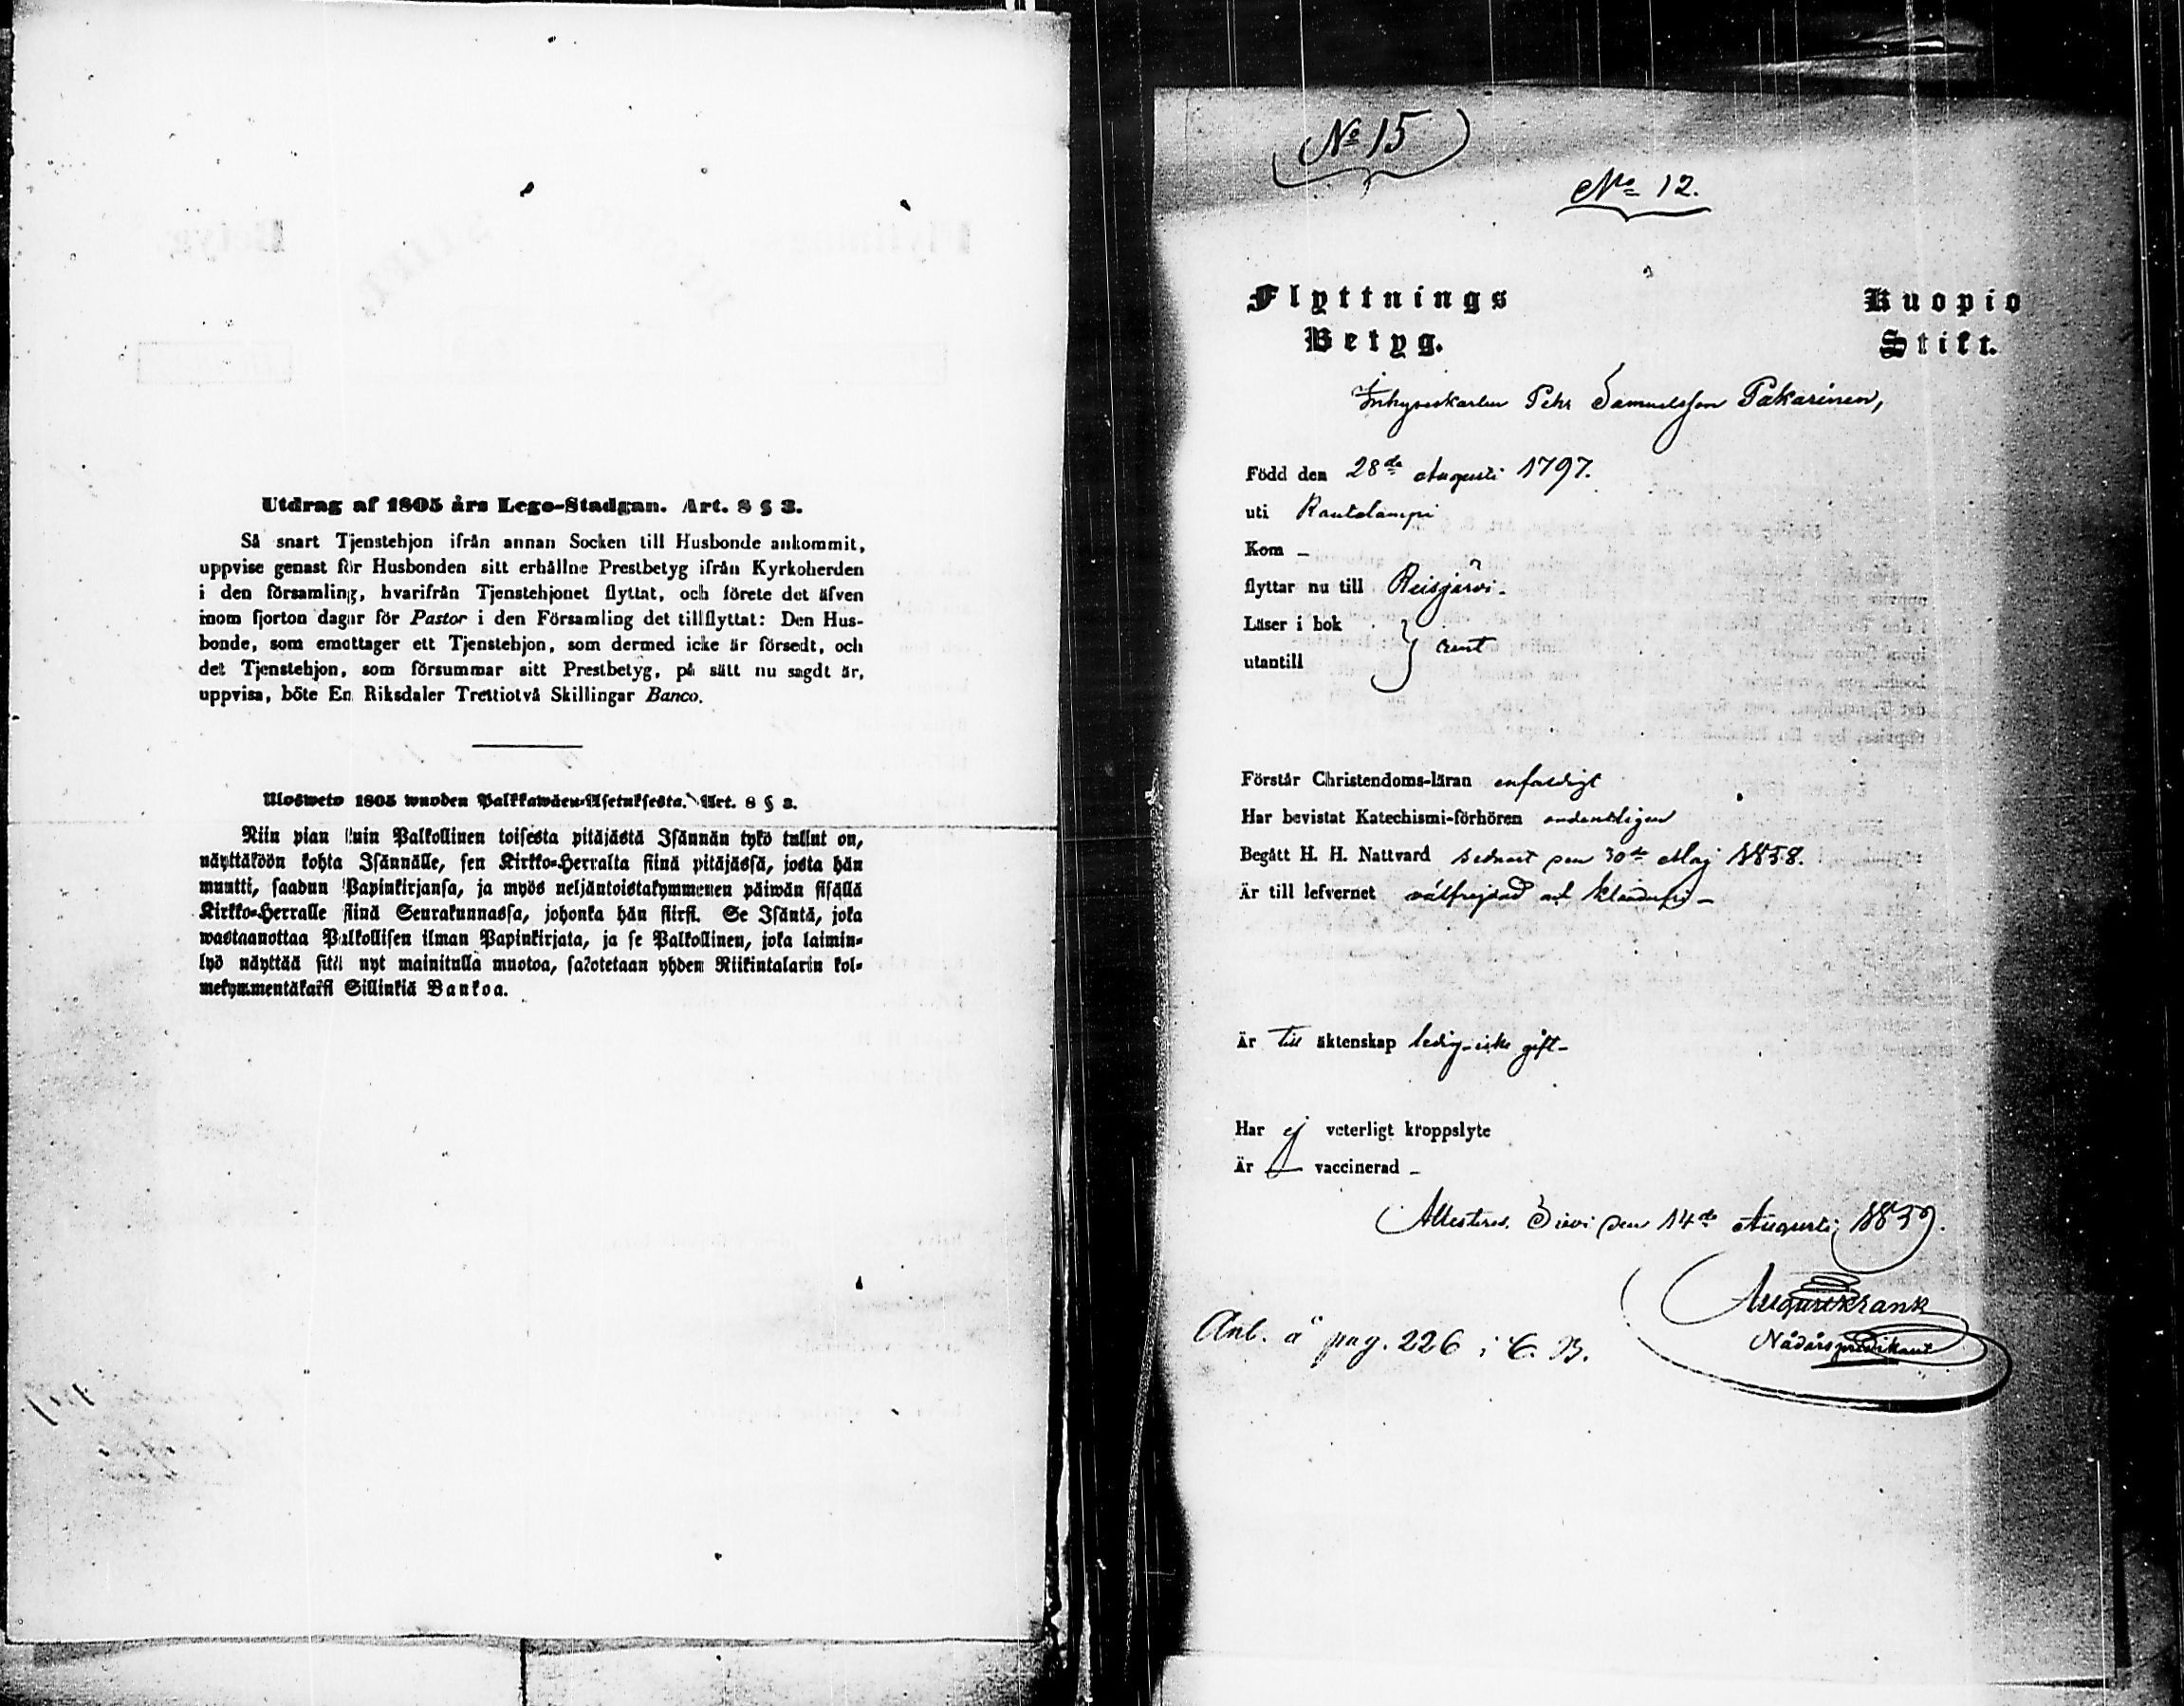 Utdrag af 1805 års Lego-Stadgan. Art. 8 § 3.
Så snart Tjenstehjon ifrån annan Socken till Husbonde ankommit,
uppvise genast för Husbonden sitt erhållne Prestbetyg ifrån Kyrkoherden
i den församling, hvarifrån Tjenstehjonet flyttat, och förete det äfven
inom fjorton dagar för Pastor i den Församling det tillflyttat: Den Hus-
bonde, som emottager ett Tjenstehjon, som dermed icke är försedt, och
det Tjenstehjon, som försummar sitt Prestbetyg, på sätt nu sagdt är,
uppvisa, böte En Riksdaler Trettiotvå Skillingar Banco.
Uloswetо 1805 wuoden Palkkawäen-Asetuksesta. Art. 8 § 3.
Niin pian kuin Palkollinen toisesta pitäjästä Isännän tykö tullut on,
näyttäköön kohta Isännälle, sen Kirkko-Herralta siinä pitäjässä, josta hän
muutti, saadun Papinkirjansa, ja myös neljäntoistakymmenen päiwän sisällä
Kirkko-Herralle siinä Seurakunnassa, johonka hän siirsi. Se Isäntä, joka
wastaanottaa Palkollisen ilman Papinkirjata, ja se Palkollinen, joka laimin-
lyö näyttää sitä nyt mainitulla muotoa, sakotetaan yhden Riikintalarin kol-
mekymmentäkaksi Sillinkiä Bankoa.
No 15
No 12.
Flyttnings
Betyg.
Kuopio
Stift.
Inhyseskarlen Pehr Samuelsson Pakarinen,
Född den 28de Augusti 1797.
uti Rautalampi
Kom –
flyttar nu till Reisjärvi.
Läser i bok
utantill
Förstår Christendoms-läran enfaldigt
Har bevistat Katechismi-förhören ordentligen
Begått H. H. Nattvard sednast den 30de Maj 1858.
Är till lefvernet välfrejdad och klanderfri –
Är till äktenskap ledig – icke gift –
Har ej veterligt kroppslyte
Är – vaccinerad –
Attesteras. Sievi den 14de Augusti 1859.
August Krank
Nådårspredikant
Ant. å pag. 226 i C. B.